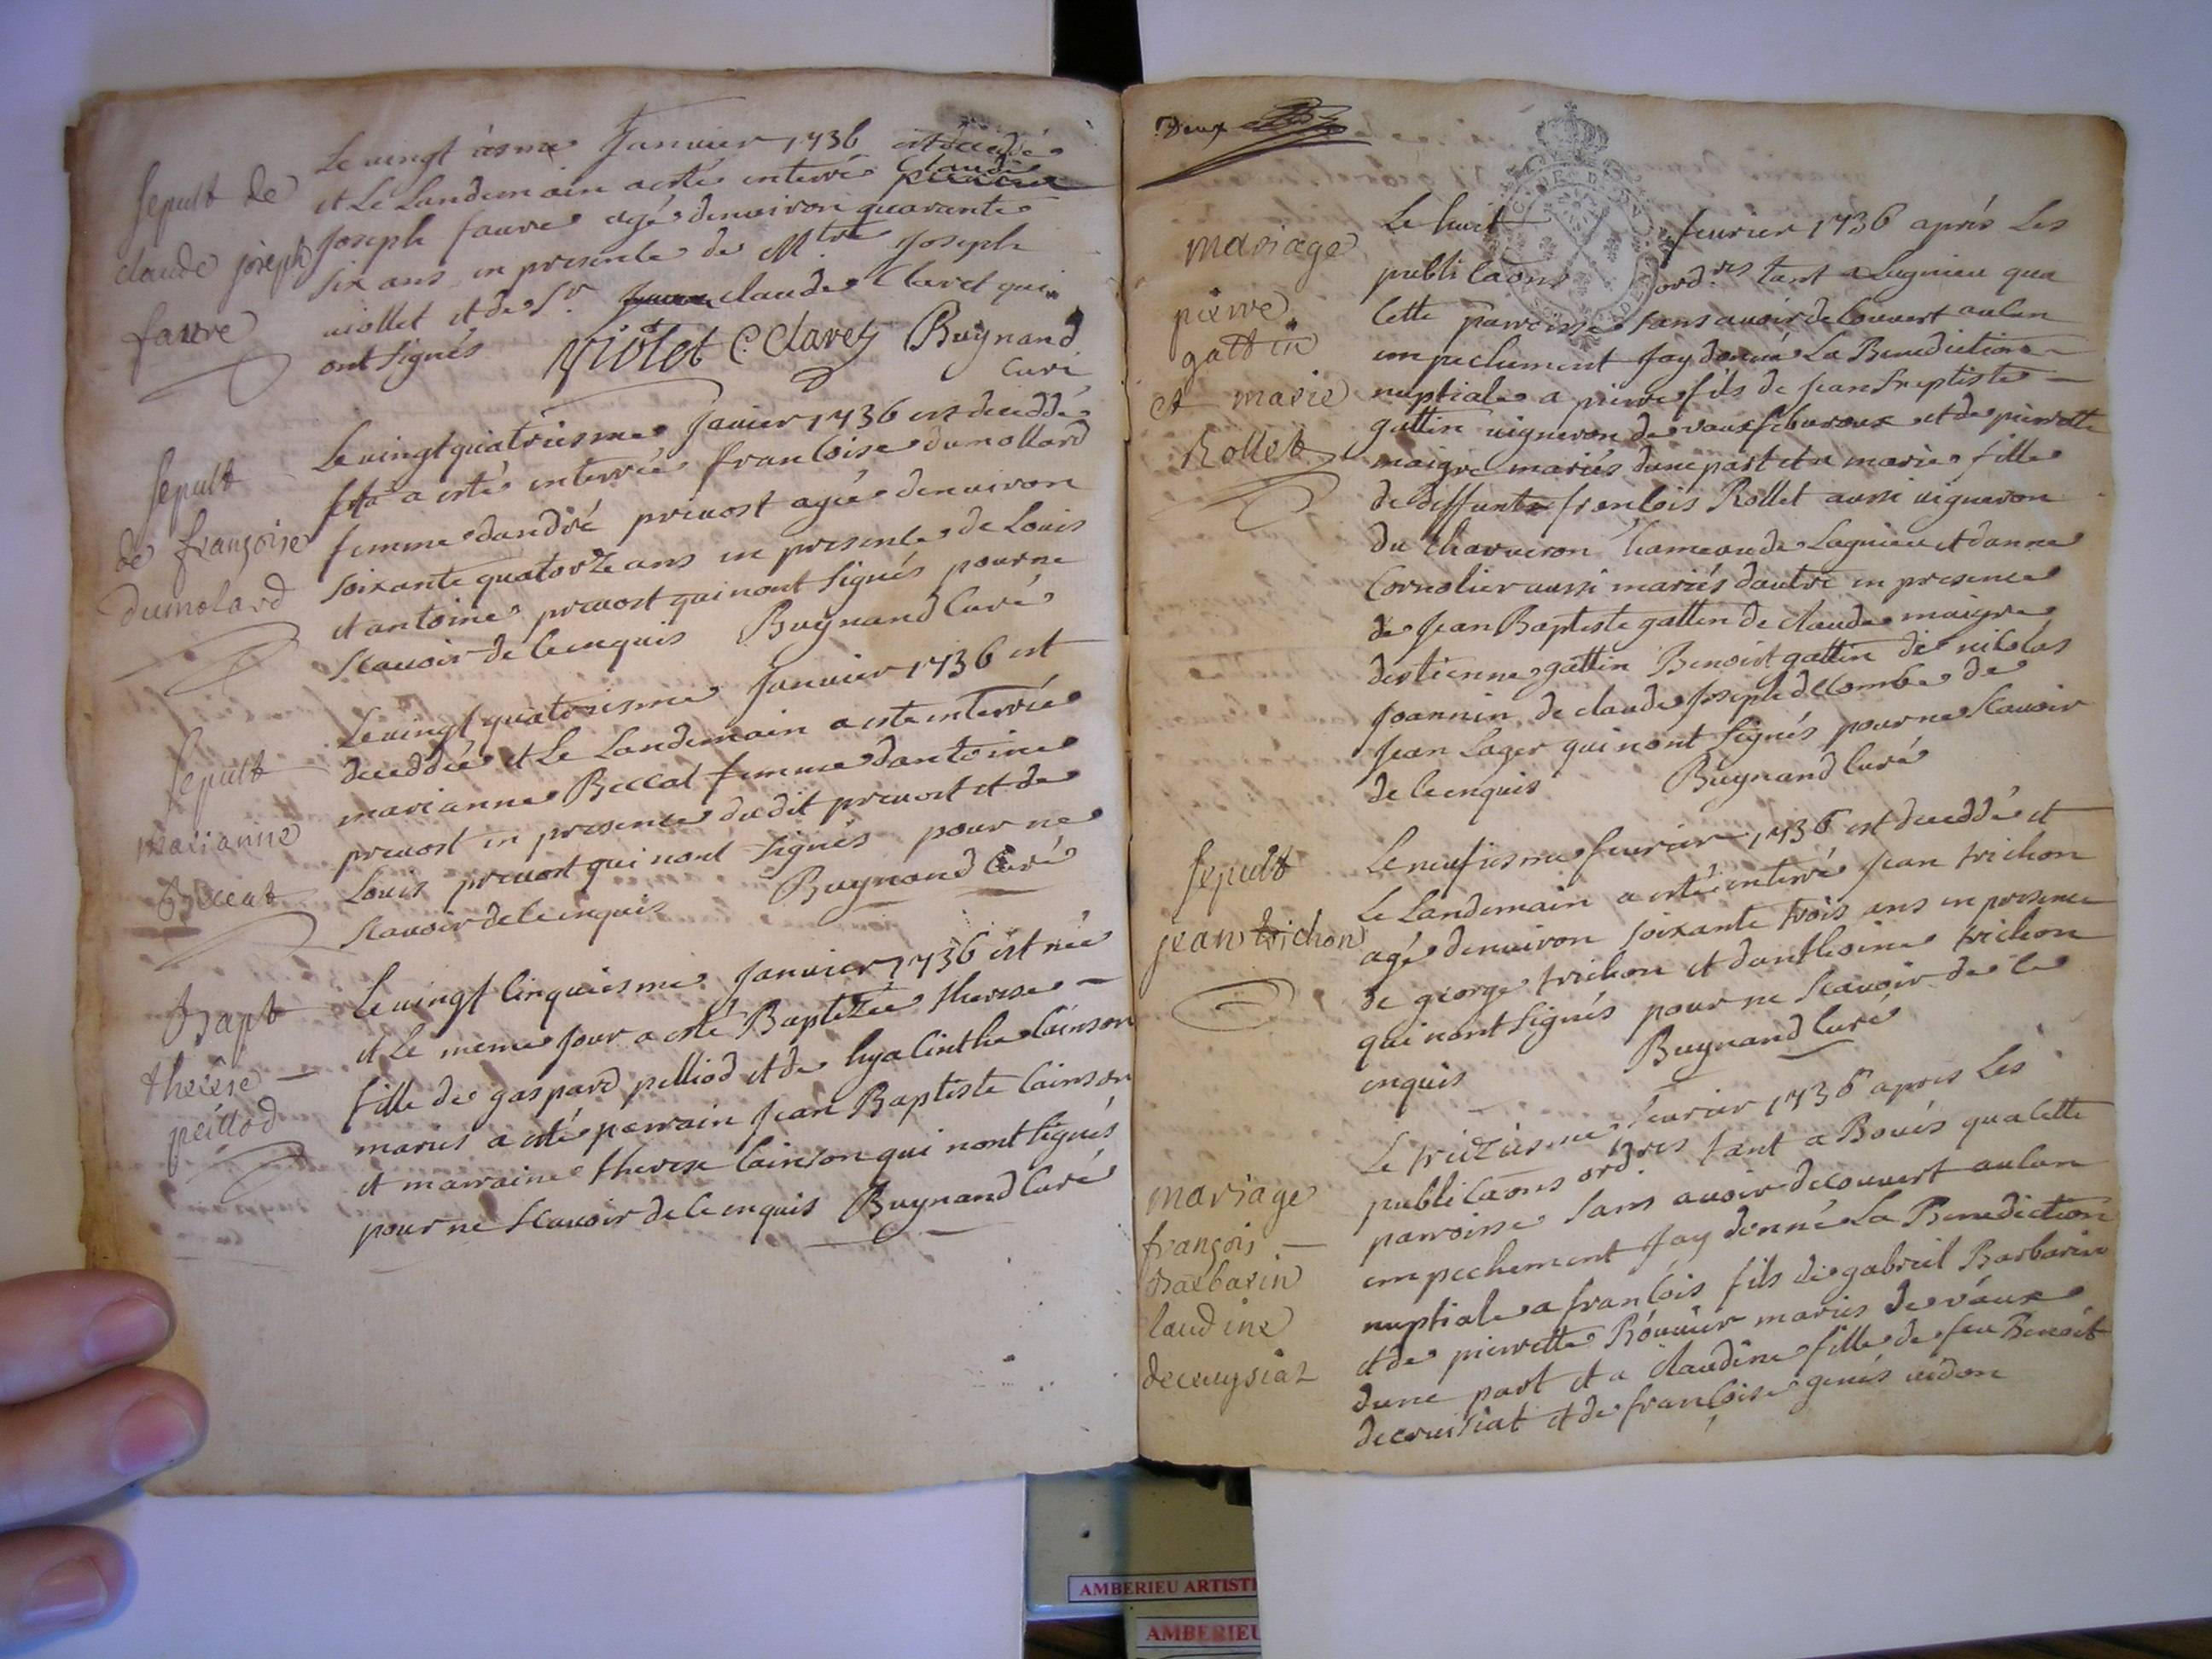 Sepult de
claude joseph
favre
Le vingt iesme Janvier 1736 est decedé
et Le Landemain a esté enterré claude
Joseph favre agé denviron quarante
six ans en presence de Mtre Joseph
viollet et de Sr. claude Claret qui
ont signés Violet C. Claret Buynand
Curé
Sepult
de françoise
Dumolard
Le vingt quatriesme Janvier 1736 est deceddé
a esté enterrée francoise dumollard
femme dandré prevost agée denviron
soixante quatorze ans en presence de Louis
et antoine prevost qui nont signés pour ne
scavoir de ce enquis Buynand Curé
Sepult
marianne
Beccat
Le vingt quatriesme Janvier 1736 est
deceddée et Le Landemain a esté enterrée
marianne Beccat femme dantoine
prevost en presence dudit prevost et de
Louis prevost qui nont signés pour ne
scavoir de ce enquis Buynand Curé
Bapt
therese
peillod
Le vingt cinquiesme Janvier 1736 est née
et Le meme jour a esté Baptizée therese
fille de gaspard pelliod et de hyacinthe Cainson
mariés a esté parrain Jean Baptiste Cainson
et marraine therese Cainson qui nont signés
pour ne scavoir de ce enquis Buynand Curé
Deux
mariage
pierre
gattin
et marie
Rollet
Le huit fevrier 1736 aprés Les
publicaons ordres tant a Lagnieu qua
Cette parroisse sans avoir decouvert aucun
empechement Jay donné La Benediction
nuptiale a pierre fils de Jean Breptiste
gattin vigneron de vaux febvroux et de pierrette
maigre mariés dune part et a marie fille
de deffunt francois Rollet aussi vigneron
du Charveron hameau de Lagnieu et danne
Cornolier aussi mariés dautre en presence
de Jean Baptiste gattin de claude maigre
destienne gattin Benoist gattin de nicolas
Joannin de claude Joseph delombe de
Jean Lager qui nont signés pour ne scavoir
de ce enquis Buynand Curé
Sepult
jean trichon
Le neufiesme fevrier 1736 est deceddé et
Le Landemain a esté enterré Jean trichon
agé denviron soixante trois ans en presence
de george trichon et danthoine trichon
qui nont signés pour ne scavoir de ce
enquis Buynand Curé
mariage
françois
Barbarin
laudine
decruysiat
Le treiziesme fevrier 1736 apres Les
publicaons ordres tant a Boués qua Cette
parroisse sans avoir decouvert aucun
empechement Jay donné La Benediction
nuptiale a francois fils de gabriel Barbarin
et de pierrette Bouvier mariés de vaux
dune part et a claudine fille de feu Benoit
decruisiat et de francoise genés
AMBERIEU ARTISTI
AMBERIEU